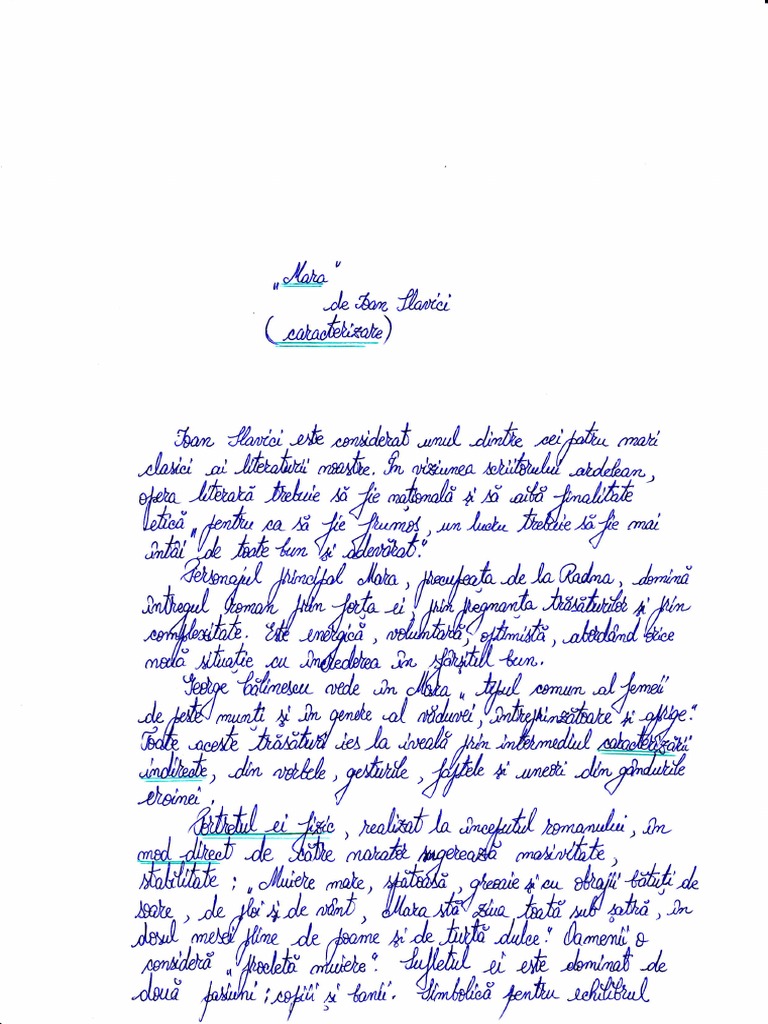 „Mara"
de Ioan Slavici
(caracterizare)
Ioan Slavici este considerat unul dintre cei patru mari
clasici ai literaturii noastre. În viziunea scriitorului ardelean,
opera literară trebuie să fie națională și să aibă finalitate
etică „pentru ca să fie frumos, un lucru trebuie să fie mai
întâi de toate bun și adevărat."
Personajul principal Mara, precupeața de la Radna, domină
întregul roman prin forța ei, prin pregnanța trăsăturilor și prin
complexitate. Este energică, voluntară, optimistă, abordând orice
nouă situație cu încrederea în sfârșitul bun.
George Călinescu vede în Mara „tipul comun al femeii
de peste munți și în genere al văduvei, întreprinzătoare și aprige."
Toate aceste trăsături ies la iveală prin intermediul caracterizării
indirecte, din vorbele, gesturile, faptele și uneori din gândurile
eroinei.
Portretul ei fizic, realizat la începutul romanului, în
mod direct de către narator sugerează masivitate,
stabilitate: „Muiere mare, spătoasă, greoaie și cu obrajii bătuți de
soare, de ploi și de vânt, Mara stă ziua toată sub șatră, în
dosul mesei pline de poame și de turtă dulce." Oamenii o
consideră „procletă muiere". Sufletul ei este dominat de
două pasiuni: copiii și banii. Simbolică pentru echilibrul